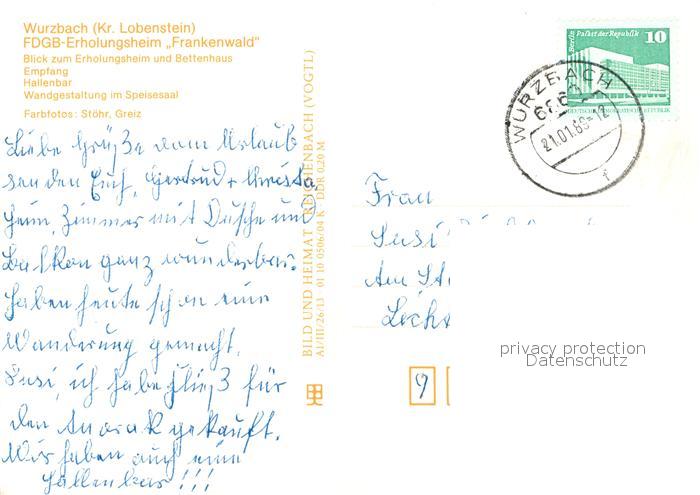 Wurzbach (Kr. Lobenstein)
FDGB-Erholungsheim „Frankenwald“
Blick zum Erholungsheim und Bettenhaus
Empfang
Hallenbar
Wandgestaltung im Speisesaal
Farbfotos: Stöhr, Greiz
Liebe Grüße vom Urlaub
senden Euch, Gertrud + Christa,
Heim, Zimmer mit Dusche und
Balkon ganz wunderbar.
Haben heute schon eine
Wanderung gemacht.
Susi, ich habe für
den Anorak gekauft.
Wir haben auch eine
Hallenbar !!!
BILD UND HEIMAT REICHENBACH (VOGTL)
A1/III/26/13 01 10 0506/04 K DDR 0,20 M
Berlin Palast der Republik
10
DEUTSCHE DEMOKRATISCHE REPUBLIK
WURZBACH
21.01.89-12
f
Frau
Susi
Am
9
privacy protection
Datenschutz